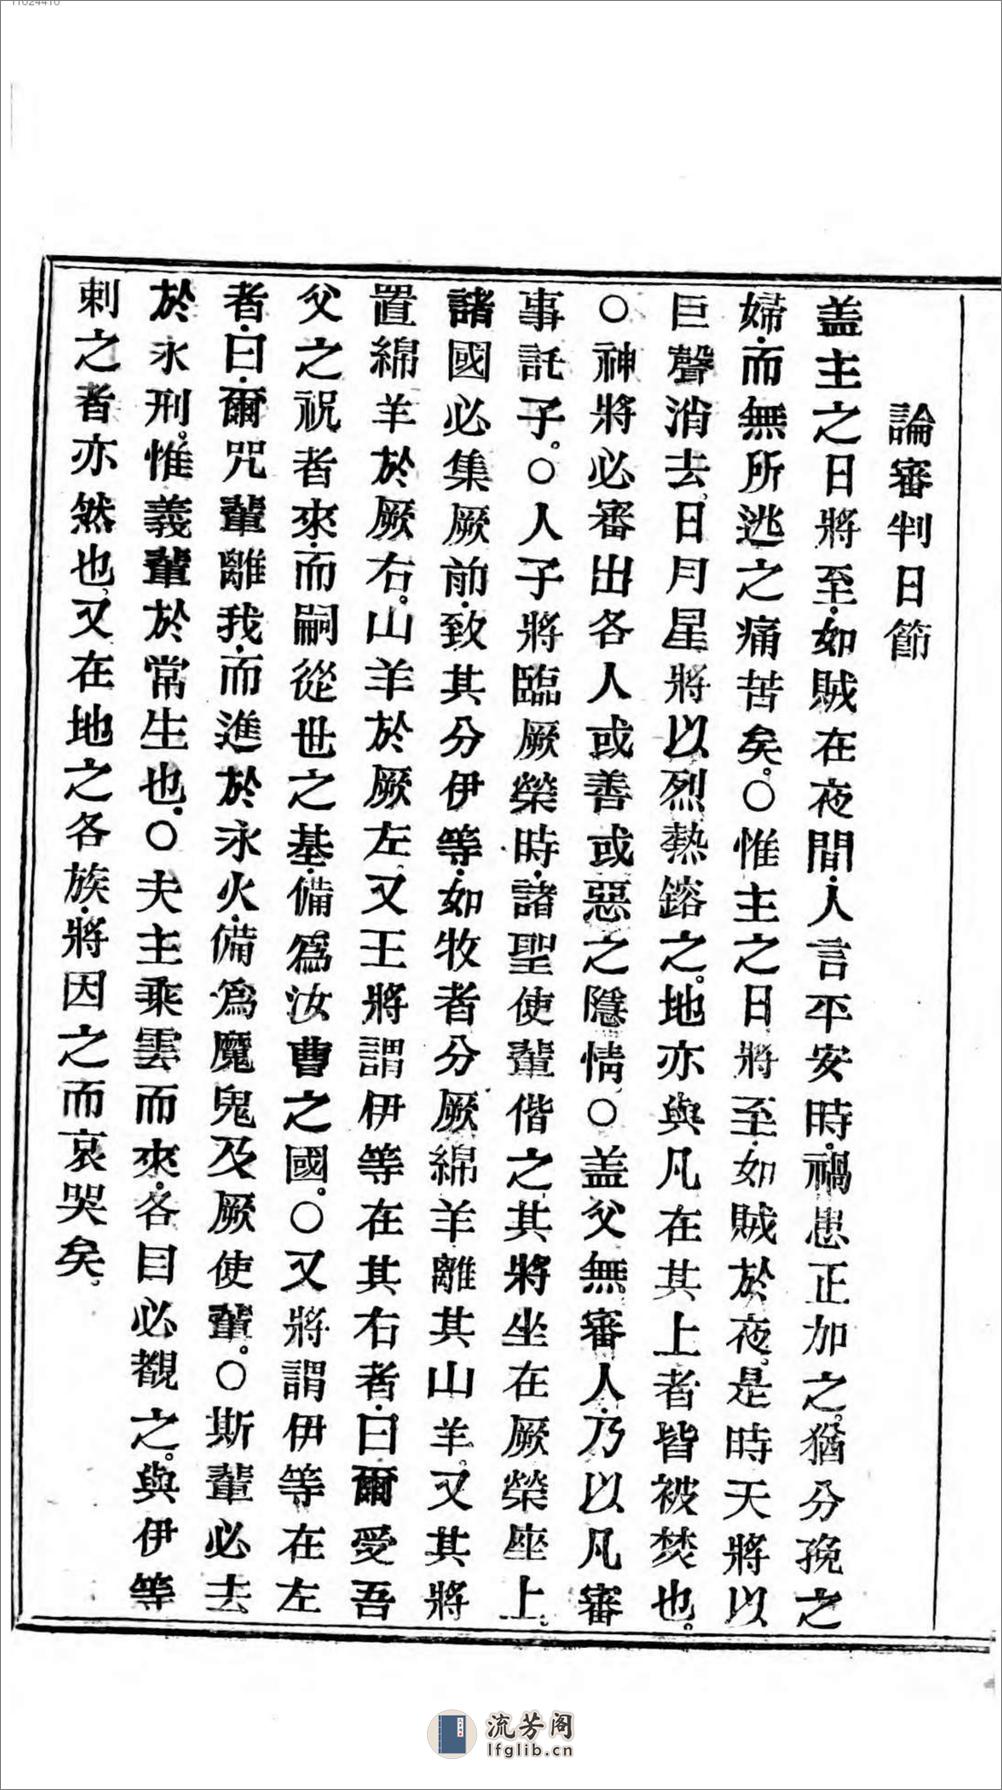 11024410
論審判日節
盖主之日將至·如賊在夜間·人言平安時·禍患正加之。猶分娩之
婦·而無所逃之痛苦矣。○惟主之日將至·如賊於夜。是時天將以
巨聲消去。日月星將以烈熱鎔之。地亦與凡在其上者皆被焚也。
○神將必審出各人或善或惡之隱情。○盖父無審人·乃以凡審
事託子。○人子將臨厥榮時·諸聖使輩偕之·其將坐在厥榮座上。
諸國必集厥前·致其分伊等·如牧者分厥綿羊離其山羊。又其將
置綿羊於厥右。山羊於厥左。又王將謂伊等在其右者·曰爾受吾
父之祝者來·而嗣從世之基·備爲汝曹之國。○又將謂伊等在左
者·曰·爾咒輩離我·而進於永火·備爲魔鬼及厥使輩。○斯輩必去
於永刑。惟義輩於常生也。○夫主乘雲而來·各目必覩之。與伊等
刺之者亦然也。又在地之各族·將因之而哀哭矣。
流芳阁
lfglib.cn